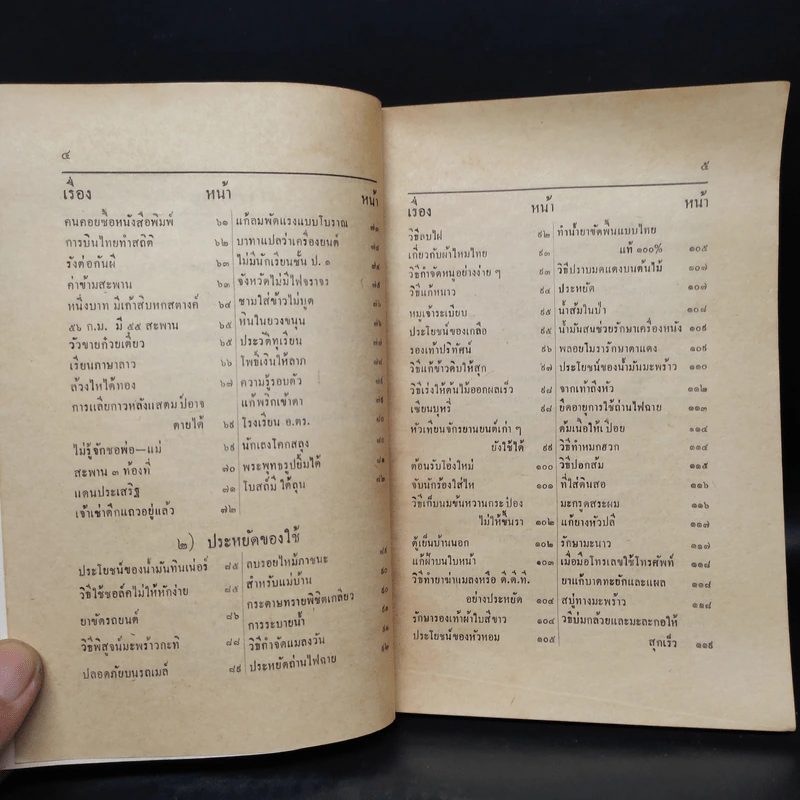 ๔
เรื่อง หน้า
คนคอยซื้อหนังสือพิมพ์ ๖๑
การบินไทยทำสถิติ ๖๒
รังต่อกันผี ๖๓
ค่าข้ามสะพาน ๖๓
หนึ่งบาท มีเก้าสิบหกสตางค์ ๖๔
๕๖ ก.ม. มี ๕๕ สะพาน ๖๕
วัวขายก๋วยเตี๋ยว ๖๕
เรียนภาษาลาว ๖๖
ล้วงไหได้ทอง ๖๗
การเลียกาวหลังแสตมป์อาจ
ตายได้ ๖๘
ไม่รู้จักชอพ่อ—แม่ ๖๙
สะพาน ๓ ท้องที่ ๗๐
แตนประเสริฐ ๗๑
เจ้าเช่าตึกแถวอยู่แล้ว ๗๒
หน้า
แก้ลมพัดแรงแบบโบราณ ๗๑
บาทาแปลว่าเครื่องยนต์
ไม่มีนักเรียนชั้น ป. ๑
จังหวัดไม่มีไฟจราจร
ชามใส่ข้าวไม่บูด
หินในยวงขนุน
ประวัติทุเรียน
โพธิ์เงินให้ลาภ
ความรู้รอบตัว
แก้พริกเข้าตา
โรงเรียน อ.ตร.
นักเลงโคกสลุง
พระพุทธรูปยิ้มได้
โบสถ์มีใต้ถุน
๒) ประหยัดของใช้
ประโยชน์ของน้ำมันทินเน่อร์ ๘๕
วิธีใช้ชอล์คไม่ให้หักง่าย ๘๕
ยาขัดรถยนต์ ๘๖
วิธีพิสูจน์มะพร้าวกะทิ ๘๗
ปลอดภัยบนรถเมล์ ๘๙
ลบรอยไหม้ภาชนะ ๘๙
สำหรับแม่บ้าน ๙๐
กระดาษทรายพิชิตเกลียว ๙๐
การระบายน้ำ
วิธีกำจัดแมลงวัน
ประหยัดถ่านไฟฉาย ๙๒
๕
เรื่อง หน้า
วิธีลบไฝ ๙๒
เกี่ยวกับผ้าไหมไทย ๙๓
วิธีกำจัดหนูอย่างง่าย ๆ ๙๓
วิธีแก้หนาว ๙๔
หมูเจ้าระเบียบ ๙๕
ประโยชน์ของเกลือ ๙๕
รองเท้าปริทัศน์ ๙๖
วิธีแก้ข้าวดิบให้สุก ๙๗
วิธีเร่งให้ต้นไม้ออกผลเร็ว ๙๘
เซียนบุหรี่ ๙๘
หัวเทียนจักรยานยนต์เก่า ๆ
ยังใช้ได้ ๙๙
ต้อนรับโอ่งใหม่ ๑๐๐
จับนักร้องใส่ไห ๑๐๑
วิธีเก็บนมข้นหวานกระป๋อง
ไม่ให้ขึ้นรา ๑๐๒
ตู้เย็นบ้านนอก ๑๐๒
แก้ฝ้าบนใบหน้า ๑๐๓
วิธีทำยาฆ่าแมลงหรือ ดี.ดี.ที.
อย่างประหยัด ๑๐๔
รักษารองเท้าผ้าใบสีขาว ๑๐๔
ประโยชน์ของหัวหอม ๑๐๕
หน้า
ทำน้ำยาขัดพื้นแบบไทย
แท้ ๑๐๐% ๑๐๕
วิธีปราบมดแดงบนต้นไม้ ๑๐๗
ประหยัด ๑๐๗
น้ำส้มในป่า ๑๐๘
น้ำมันสนช่วยรักษาเครื่องหนัง ๑๐๙
พลอยโมรารักษาตาแดง ๑๐๙
ประโยชน์ของน้ำมันมะพร้าว ๑๑๐
จากเท้าถึงหัว ๑๑๒
ยืดอายุการใช้ถ่านไฟฉาย ๑๑๓
ต้มเนื้อให้เปื่อย ๑๑๔
วิธีทำหมกฮวก ๑๑๔
วิธีปอกส้ม ๑๑๕
ที่ใส่ดินสอ ๑๑๖
มะกรูดสระผม ๑๑๖
แก้ยางหัวปลี ๑๑๗
รักษามะนาว ๑๑๗
เมื่อมือโทรเลขใช้โทรศัพท์ ๑๑๘
ยาแก้บาดทะยักและแผล ๑๑๘
สบู่ทางมะพร้าว ๑๑๘
วิธีบ่มกล้วยและมะละกอให้
สุกเร็ว ๑๑๙